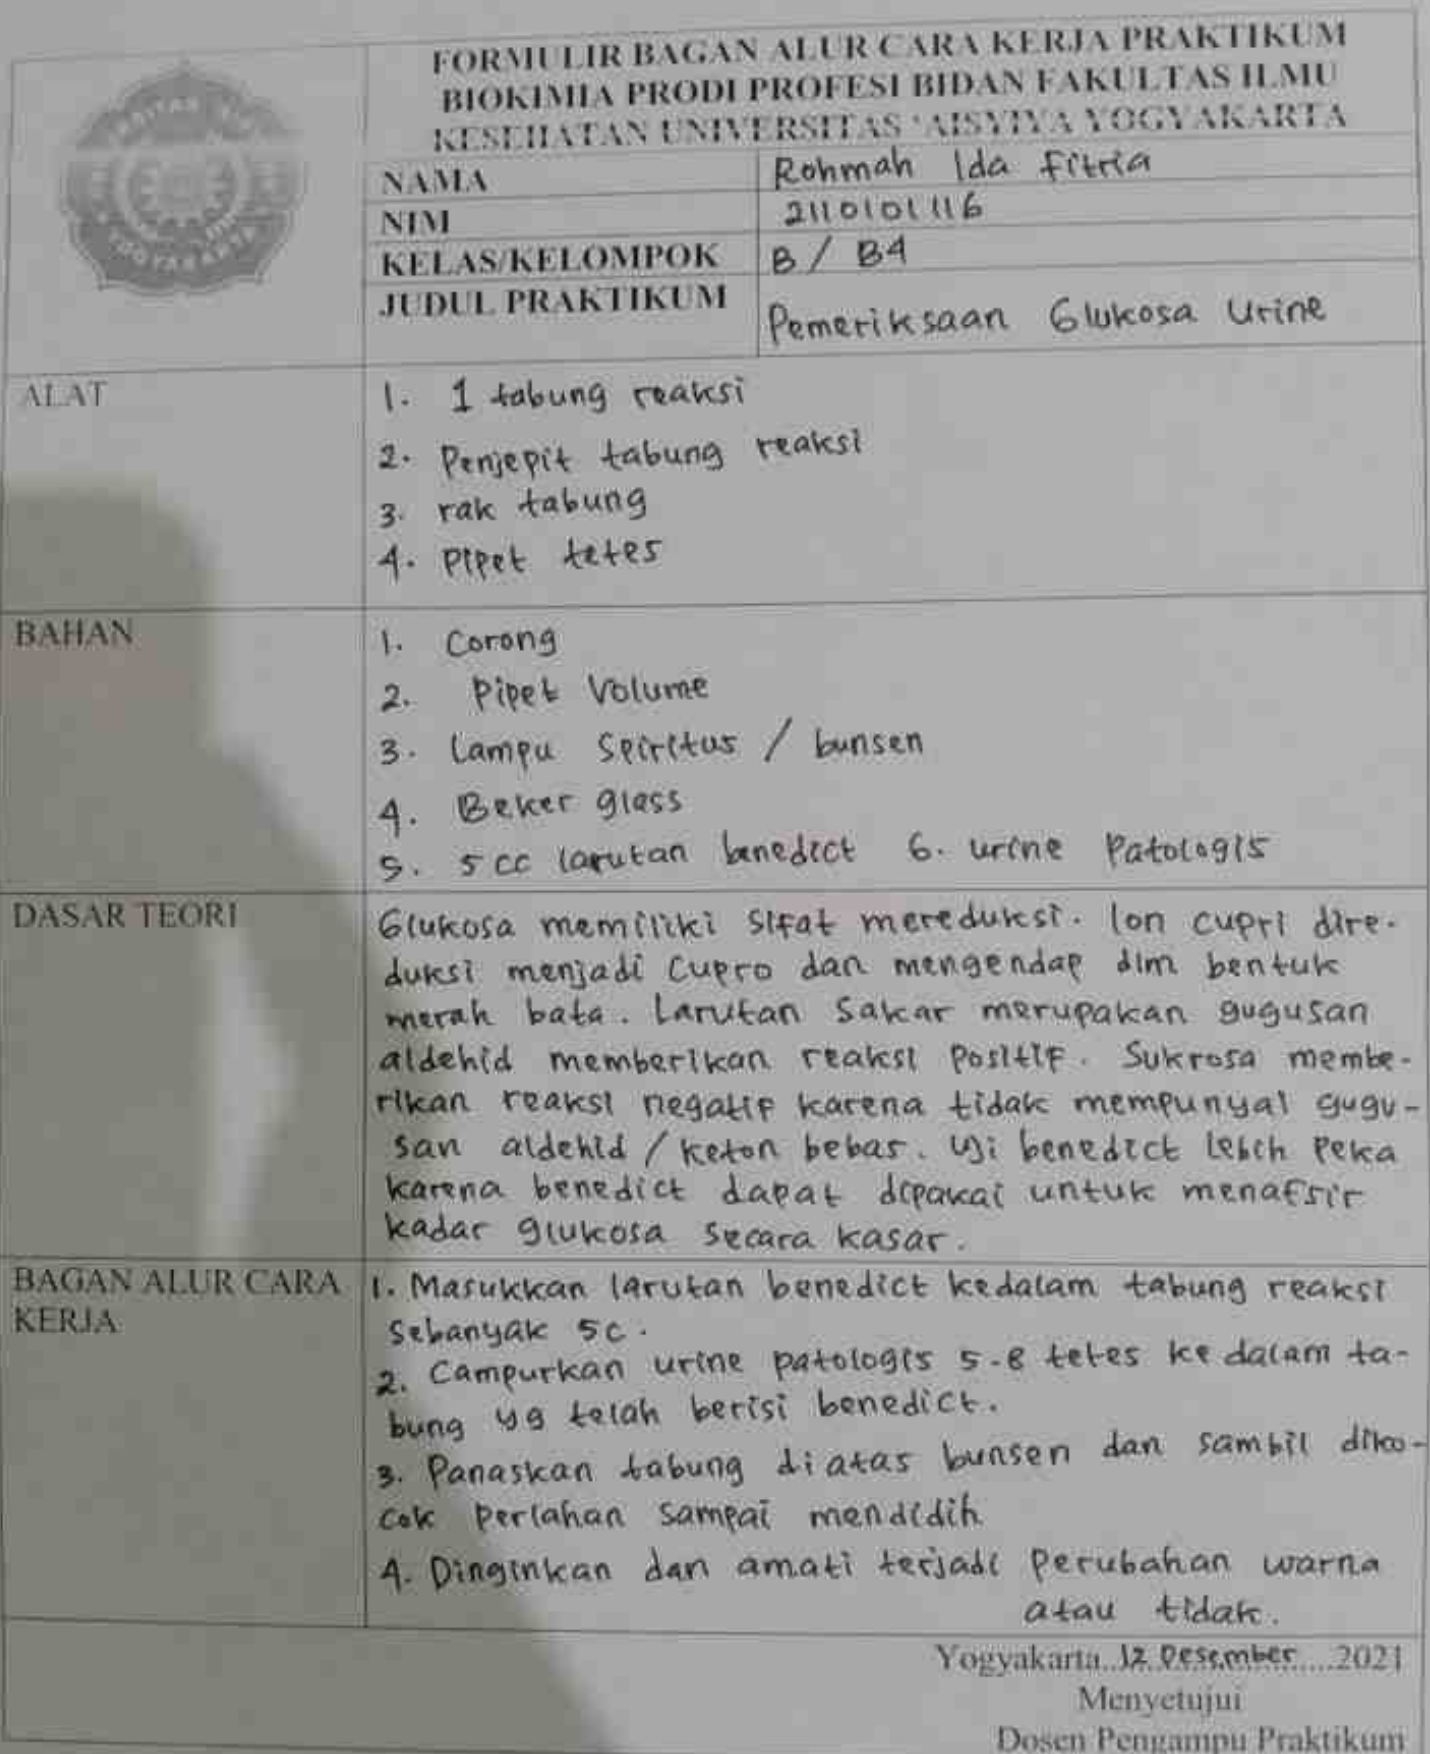 FORMULIR BAGAN ALUR CARA KERJA PRAKTIKUM
BIOKIMIA PRODI PROFESI BIDAN FAKULTAS ILMU
KESEHATAN UNIVERSITAS 'AISYIYA YOGYAKARTA
NAMA Rohmah Ida Fitria
NIM 2110101116
KELAS/KELOMPOK B / B4
JUDUL PRAKTIKUM Pemeriksaan Glukosa Urine
ALAT
1. 1 tabung reaksi
2. Penjepit tabung reaksi
3. rak tabung
4. Pipet tetes
BAHAN
1. Corong
2. Pipet Volume
3. Lampu Spiritus / bunsen
4. Beker glass
5. 5 cc larutan benedict 6. urine Patologis
DASAR TEORI
Glukosa memiliki sifat mereduksi. Ion cupri dire-
duksi menjadi cupro dan mengendap dlm bentuk
merah bata. Larutan Sakar merupakan gugusan
aldehid memberikan reaksi Positif. Sukrosa membe-
rikan reaksi negatif karena tidak mempunyai gugu-
san aldehid / keton bebas. Uji benedict lebih Peka
karena benedict dapat dipakai untuk menafsir
kadar glukosa secara kasar.
BAGAN ALUR CARA
KERJA
1. Masukkan larutan benedict kedalam tabung reaksi
Sebanyak 5c.
2. Campurkan urine patologis 5-8 tetes ke dalam ta-
bung yg telah berisi benedict.
3. Panaskan tabung diatas bunsen dan sambil diko-
cok perlahan sampai mendidih
4. Dinginkan dan amati terjadi Perubahan warna
atau tidak.
Yogyakarta..12 Desember.....2021
Menyetujui
Dosen Pengampu Praktikum